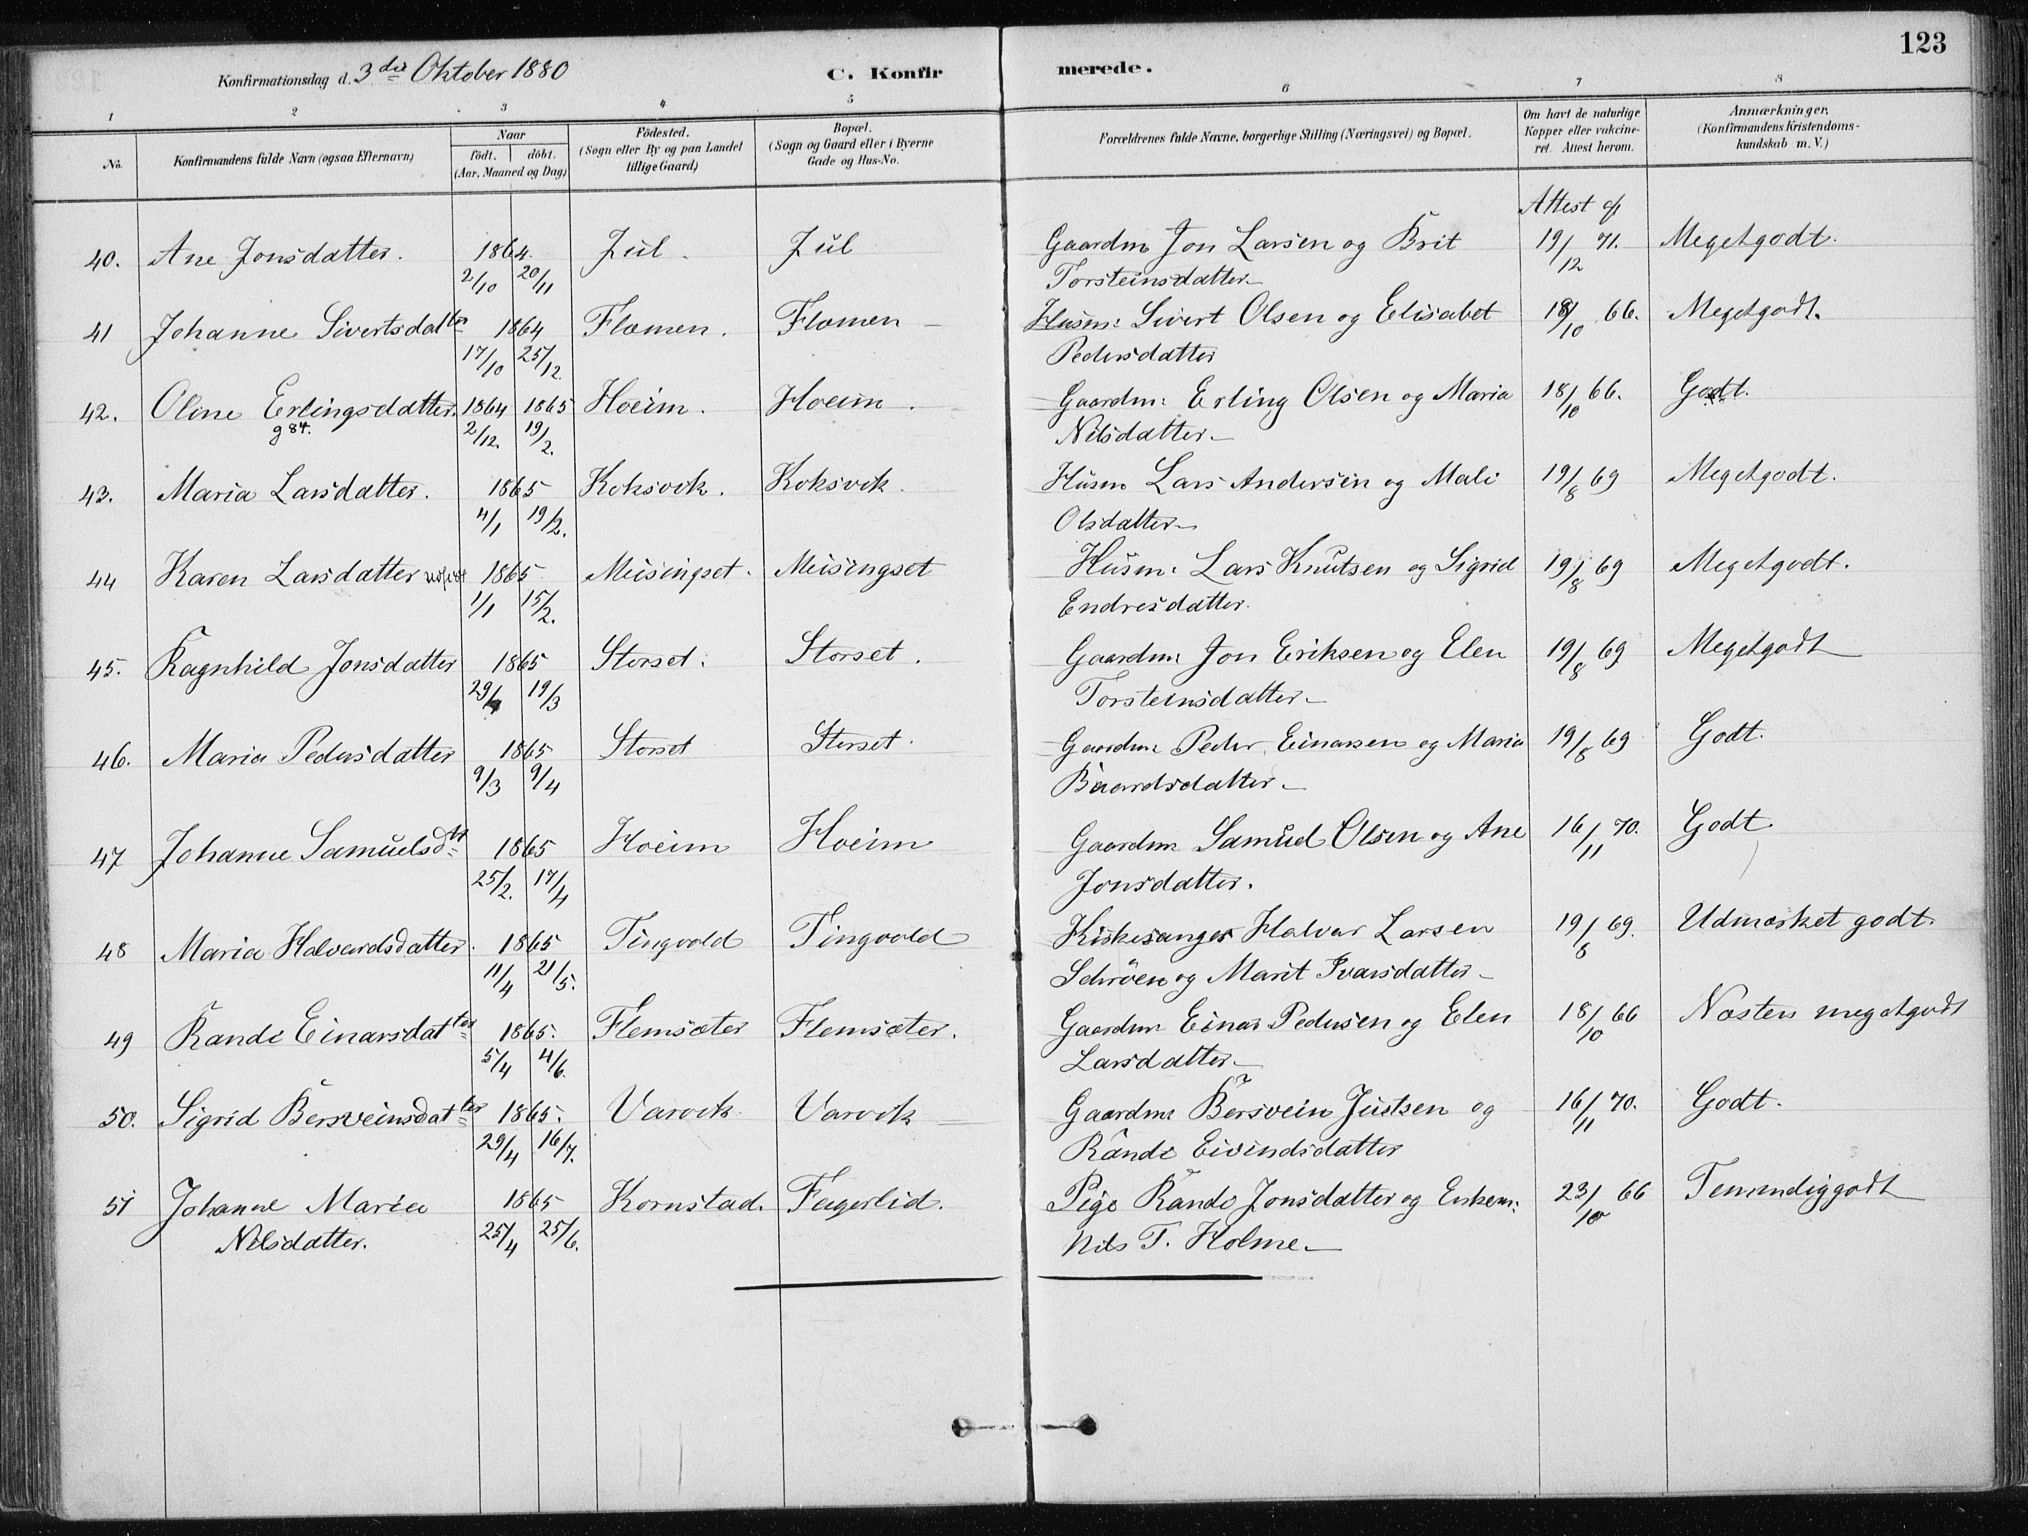 123
Konfirmationsdag d. 3die Oktober 1880
C. Konfirmerede.
1 2 3 4 5 6 7 8
No.
Konfirmandens fulde Navn (ogsaa Efternavn)
Naar
födt. döbt.
(Aar, Maaned og Dag)
Födested.
(Sogn eller By og paa Landet
tillige Gaard)
Bopæl.
(Sogn og Gaard eller i Byerne
Gade og Hus-No.
Forældrenes fulde Navne, borgerlige Stilling (Næringsvei) og Bopæl.
Om havt de naturlige
Kopper eller vakcine-
ret. Attest herom.
Anmærkninger,
(Konfirmandens Kristendoms-
kundskab m. V.)
Attest af
40. Ane Jonsdatter. 1864. Zul. Zul Gaardm Jon Larsen og Brit 19/12 71. Megetgodt.
2/10 20/11 Torsteinsdatter
41 Johanne Sivertsdatter 1864 Flemen. Flemen Husm: Sivert Olsen og Elisabet 18/10 66. Megetgodt.
17/10 25/12. Pedersdatter
42. Oline Erlingsdatter. 1864 1865 Hoeim. Hoeim. Gaardm: Erling Olsen og Maria 18/10 66. Godt.
g 84. 2/12. 19/2. Nilsdatter
43. Maria Larsdatter. 1865 Koksvik. Koksvik. Husm Lars Andersen og Mali 19/8 69 Megetgodt.
4/1 19/2. Olsdatter
44 Karen Larsdatter 1865 Meisingset. Meisingset Husm: Lars Knutsen og Sigrid 19/8 69 Megetgodt.
1/1 15/2. Endresdatter.
45. Ragnhild Jonsdatter 1865 Storset. Storset. Gaardm Jon Eriksen og Elen 19/8 69 Megetgodt
29/1 19/3 Torsteinsdatter
46. Maria Pedersdatter 1865 Storset Storset. Gaardm Peder Einarsen og Maria 19/8 69 Godt.
9/3 9/4 Baardsdatter
47 Johanne Samuelsdtr 1865 Hoeim Hoeim Gaardm Samuel Olsen og Ane 16/11 70. Godt
25/2. 17/4 Jonsdatter.
48 Maria Halvardsdatter. 1865 Tingvold Tingvold Kirkesanger Halvar Larsen 19/8 69. Udmærket godt.
11/4 21/5. Schrøen og Marit Ivarsdatter
49 Randi Einarsdatter 1865. Flemsæter Flemsæter. Gaardm Einar Pedersen og Elen 18/10 66 Næsten megetgodt
5/4 4/6. Larsdatter
50. Sigrid Bersveinsdatter 1865. Varvik Varvik Gaardm Bersvein Justsen og 16/11 70. Godt.
29/4 16/7. Randi Eivindsdatter
51 Johanne Maria 1865 Kornstad. Fagerlid. Pige Randi Jonsdatter og Enkem: 23/10 66 Temmeliggodt
Nilsdatter. 25/4 25/6. Nils T. Holme